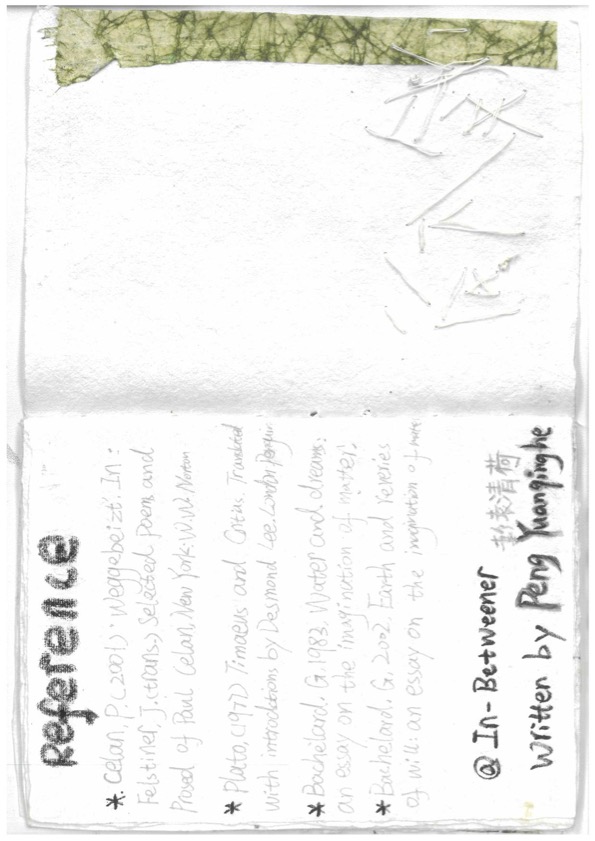 Reference
*. Celan, P.(2001) 'Weggebeizt'. In:
Felstiner, J.(trans.) Selected Poem and
Prosed of Paul Celan, New York: W.W. Norton
* Plato,(1971) Timaeus and Critus. Translated
with introductions by Desmond Lee. London: Penguin
* Bachelard, G. 1983. Water and dreams:
an essay on the imagination of matter.
* Bachelard, G. 2002. Earth and reveries
of will: an essay on the imagination of matter
@ In-Betweener
清荷
Written by Peng Yuanqinghe